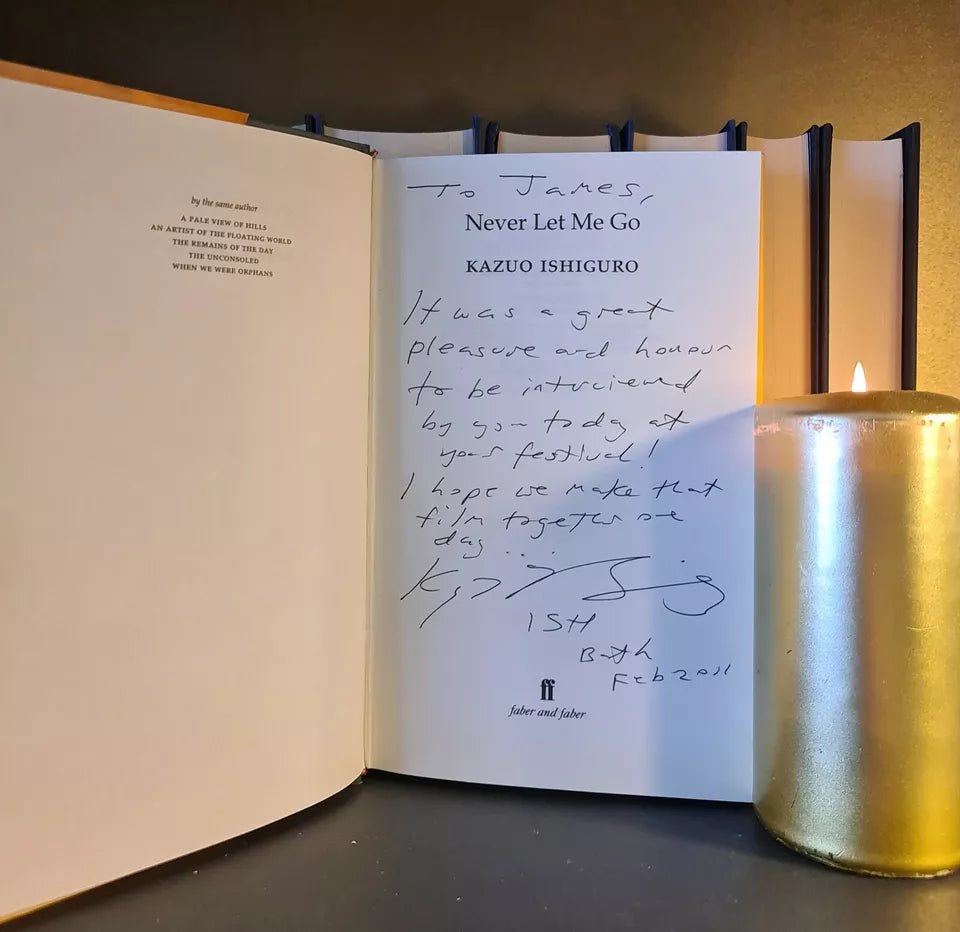 by the same author
A PALE VIEW OF HILLS
AN ARTIST OF THE FLOATING WORLD
THE REMAINS OF THE DAY
THE UNCONSOLED
WHEN WE WERE ORPHANS
To James,
Never Let Me Go
KAZUO ISHIGURO
It was a great
pleasure and honour
to be interviewed
by you today at
your festival!
I hope we make that
film together one
day...
ISH
Bath
Feb 2011
ff
faber and faber